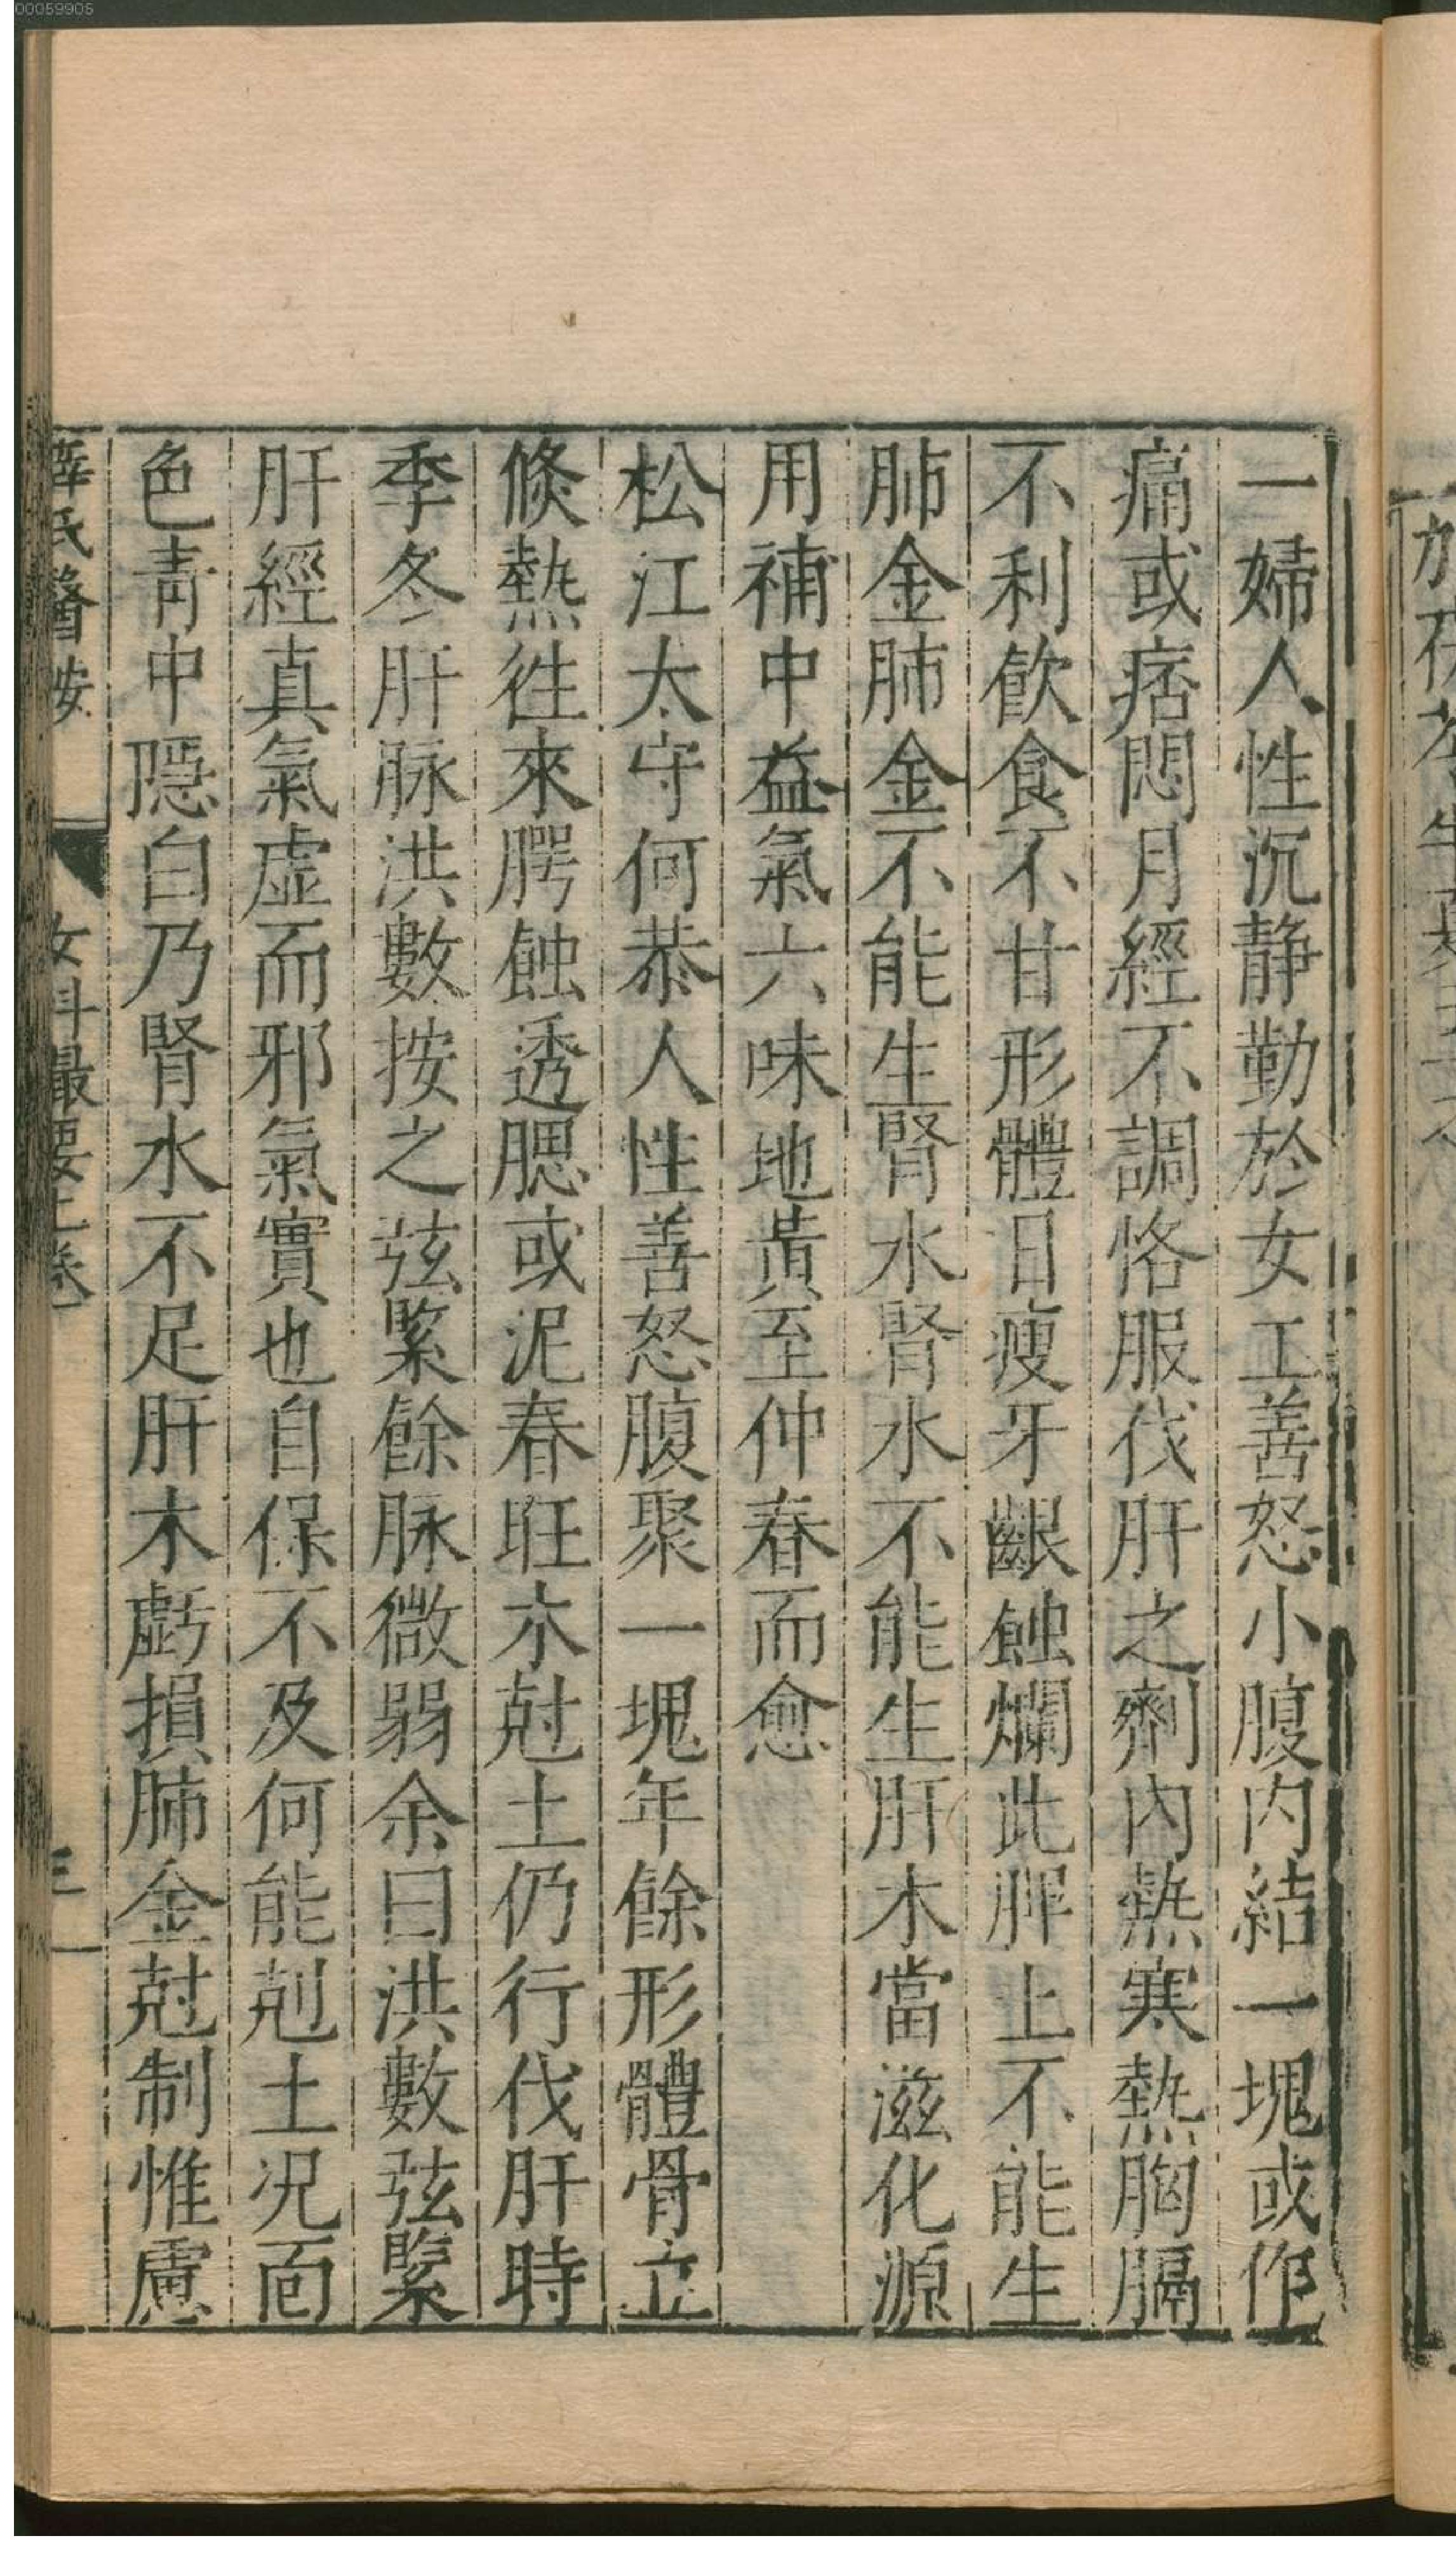 00059905
一婦人性沉静勤於女工善怒小腹内結一塊或作
痛或痞悶月經不調恪服伐肝之劑内熱寒熱胸膈
不利飲食不甘形體日瘦牙齦蝕爛此脾土不能生
肺金肺金不能生腎水腎水不能生肝木當滋化源
用補中益氣六味地黄至仲春而愈
松江太守何恭人性善怒腹聚一塊年餘形體骨立
倐熱徃來腭蝕透腮或泥春旺木尅土仍行伐肝時
季冬肝脉洪數按之弦緊餘脉微弱余曰洪數弦緊
肝經真氣虚而邪氣實也自保不及何能尅土况面
色青中隱白乃腎水不足肝木虧損肺金尅制惟慮
薛氏醫按
女科撮要上卷
三